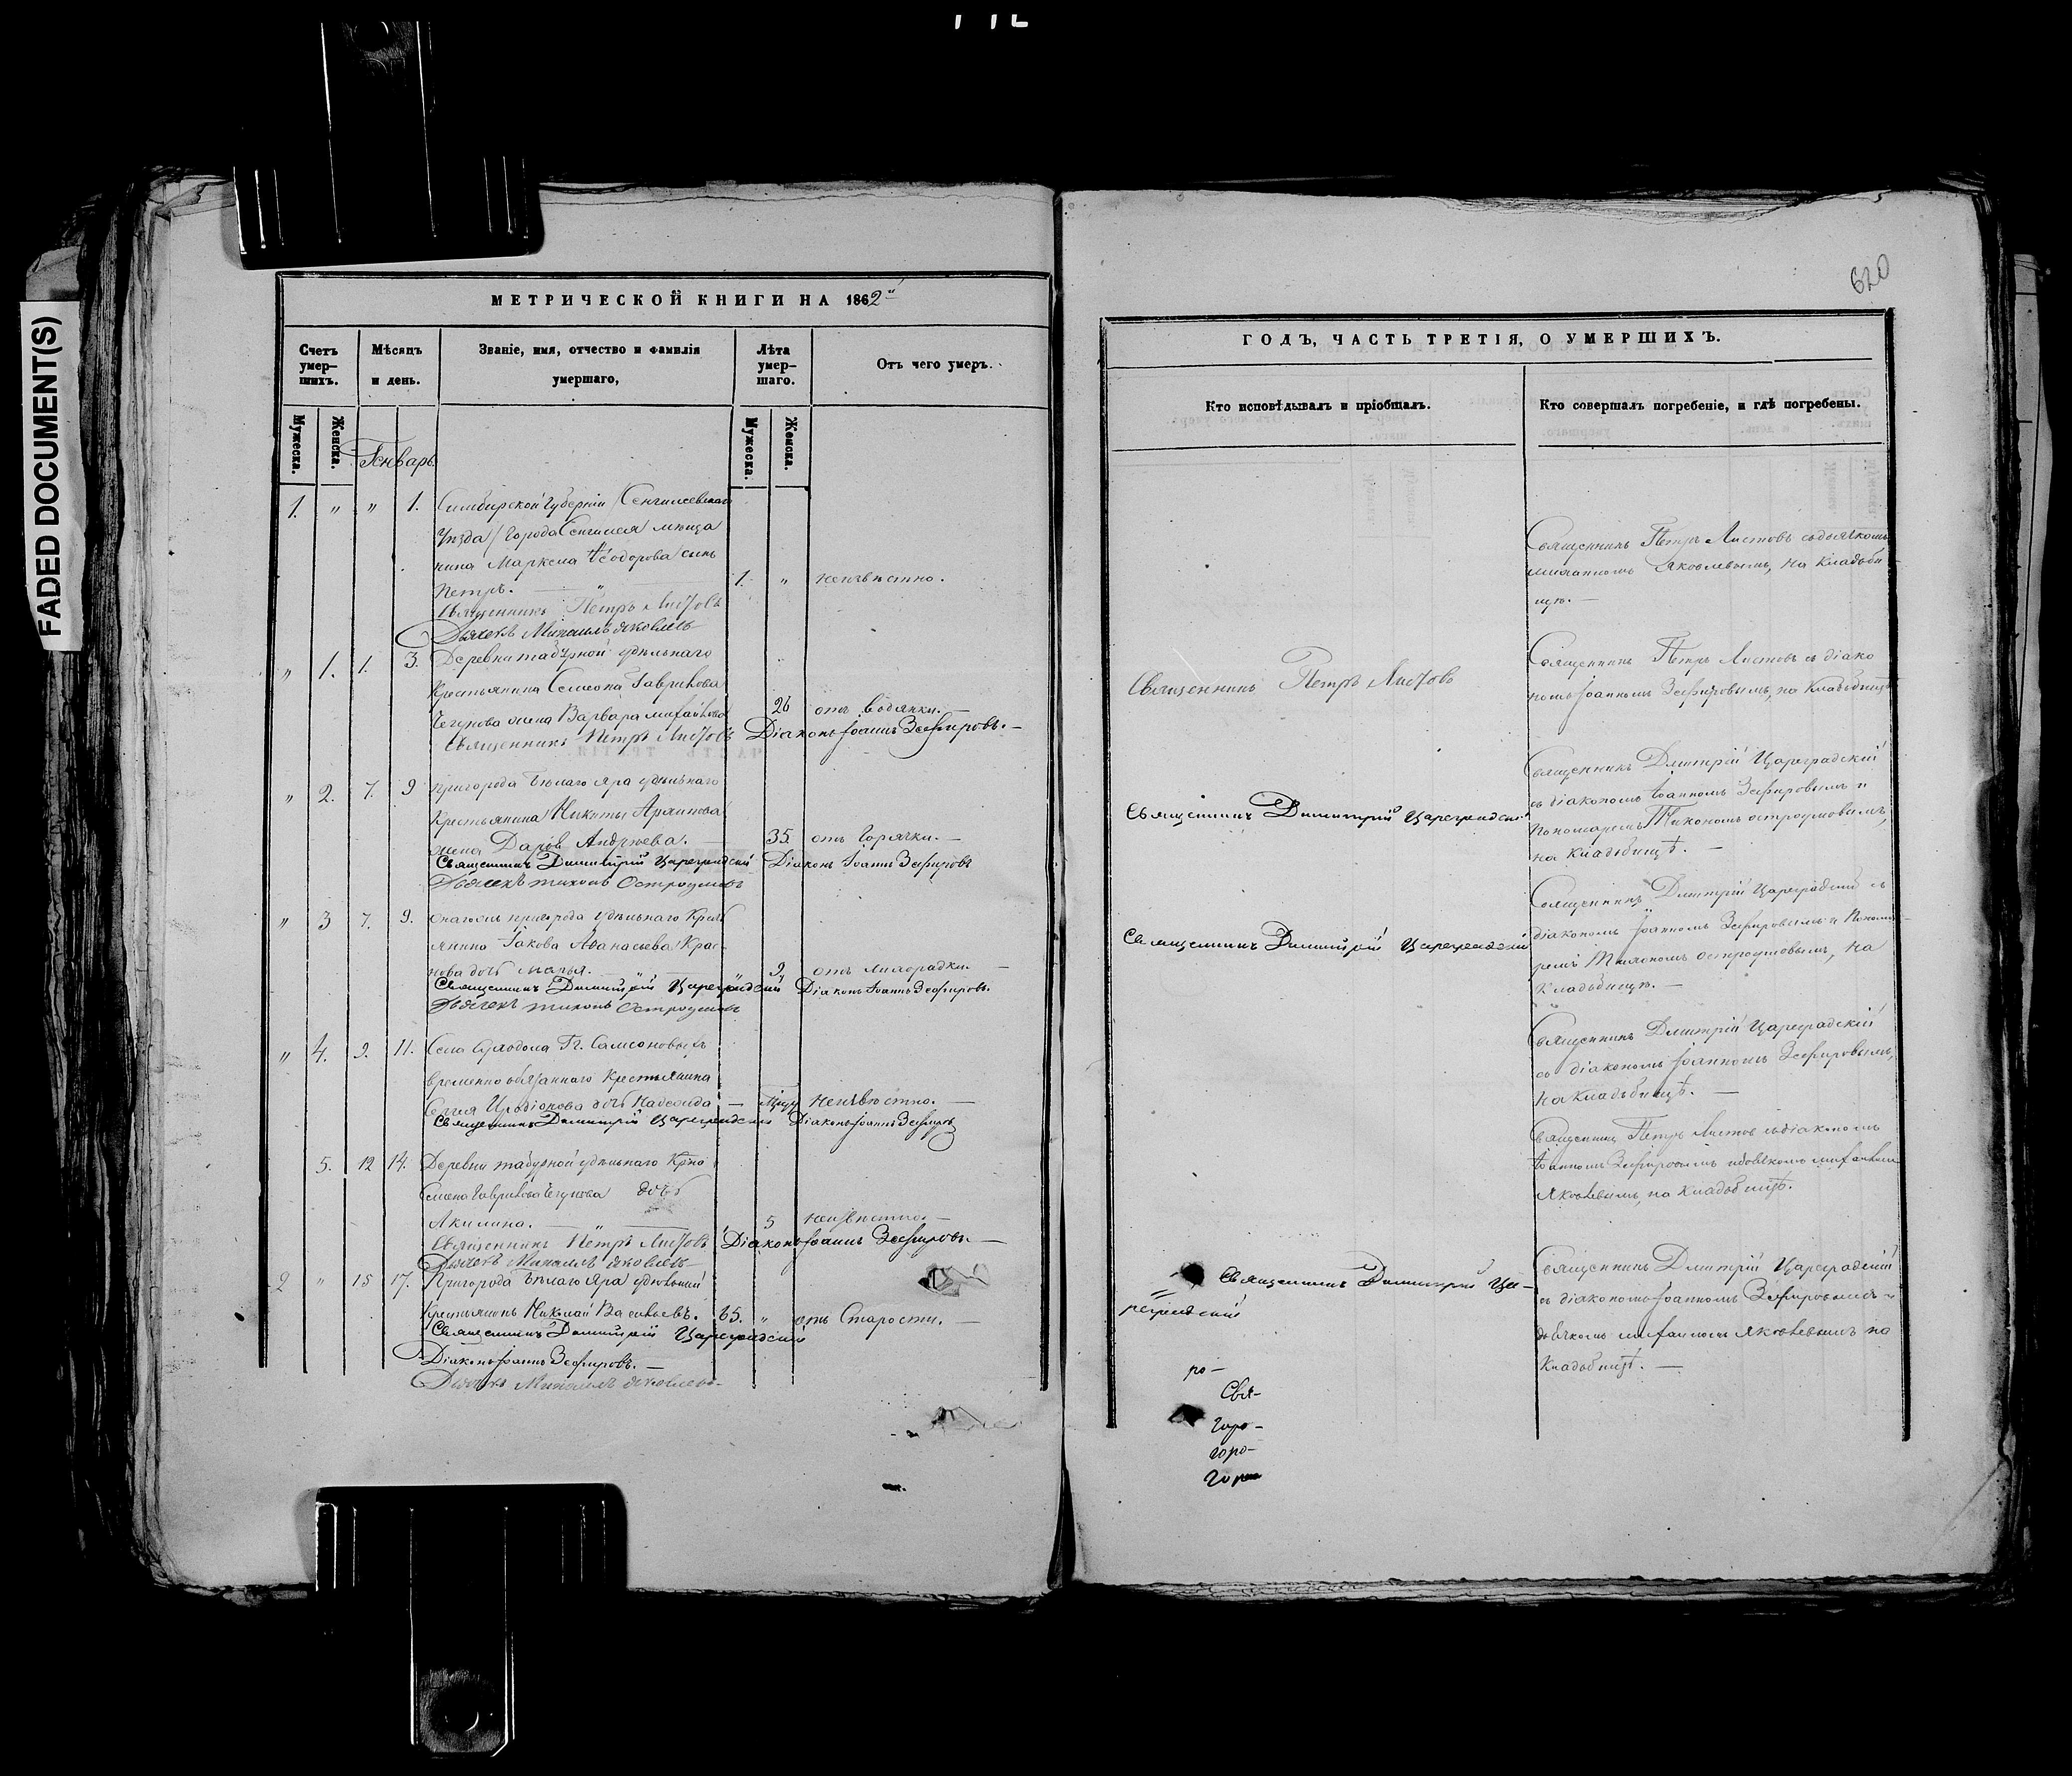 FADED DOCUMENT(S)
МЕТРИЧЕСКОЙ КНИГИ НА 1862й
Счетъ умер-шихъ.
Мѣсяцъ и день.
Званіе, имя, отчество и фамилія умершаго,
Лѣта умер-шаго.
Отъ чего умеръ.
Мужеска.
Женска.
Мужеска.
Женска.
Генварь
1. " " 1. Симбирской губерніи /Сенгилеевскаго
Уѣзда/ Города Сенгилея мѣща
нина Маркела Ѳеодорова сынъ
Петръ. — " 1. " неизвѣстно.
Священникъ Петръ Листовъ
Дьячекъ Михаилъ Яковлевъ
" 1. 1. 3. Деревни табурной удѣльнаго
Крестьянина Семеона Гаврилова
Чегунова жена Варвара михайлова 26 отъ водянки. —
Священникъ Петръ Листовъ Діаконъ Іоаннъ Зефировъ. —
" 2. 7. 9 пригорода Бѣлаго Яра удѣльнаго
Крестьянина Никиты Архипова
жена Дарья Андреева. — 35. отъ горячки. —
Священникъ Димитрій Цареградскій Діаконъ Іоаннъ Зефировъ
Дьячекъ тихонъ Остроумовъ
" 3 7. 9. онагожъ пригорода удѣльнаго Кресть
янина Іакова Аѳанасьева Крас-
нова дочь марья. — 9. отъ лихорадки. —
Священникъ Димитрій Цареградскій Діаконъ Іоаннъ Зефировъ.
Дьячекъ тихонъ Остроумовъ
" 4. 9. 11. Села Суходола Гг. Самсоновыхъ
временно обязаннаго Крестьянина
Сергія Иродіонова дочь Надежда — неизвѣстно. —
Священникъ Димитрій Цареградскій Діаконъ Іоаннъ Зефировъ
5. 12 14. Деревни табурной удѣльнаго Крно
Семена Гаврилова Чегунова дочь
Акилина. — " — 5 неизвѣстно. —
Священникъ Петръ Листовъ Діаконъ Іоаннъ Зефировъ. —
Дьячекъ Михаилъ Яковлевъ
2 " 15 17. Пригорода Бѣлаго Яра удѣльный
Крестьянинъ Николай Васильевъ. 65. " отъ Старости. —
Священникъ Димитрій Цареградскій
Діаконъ Іоаннъ Зефировъ. —
Дьячекъ Михаилъ Яковлевъ. —
620
ГОДЪ, ЧАСТЬ ТРЕТІЯ, О УМЕРШИХЪ.
Кто исповѣдывалъ и пріобщалъ.
Кто совершалъ погребеніе, и гдѣ погребены.
Священникъ Петръ Листовъ съ дьячкомъ
михаиломъ Яковлевымъ, на Кладьби
щѣ. —
Священникъ Петръ Листовъ
Священникъ Петръ Листовъ съ діако
номъ Іоанномъ Зефировымъ, на Кладьбищѣ
Священникъ Димитрій Цареградскій
Священникъ Дмитрій Цареградскій
съ діакономъ Іоанномъ Зефировымъ и
Пономаремъ Тихономъ остроумовымъ,
на Кладьбищѣ. —
Священникъ Димитрій Цареградскій
Священникъ Дмитрій Цареградскій съ
діакономъ Іоанномъ Зефировымъ и Понома-
ремъ Тихономъ остроумовымъ, на
Кладьбищѣ. —
Священникъ Дмитрій Цареградскій
съ діакономъ Іоанномъ Зефировымъ,
на Кладьбищѣ. —
Священникъ Петръ Листовъ съ діакономъ
Іоанномъ Зефировымъ и дьячкомъ михаиломъ
Яковлевымъ, на Кладьбищѣ.
Священникъ Димитрій Ца-
реградскій
Священникъ Дмитрій Цареградскій
съ діакономъ Іоанномъ Зефировымъ и
дьячкомъ михаиломъ Яковлевымъ на
Кладьбищѣ. —
ро-
Свя-
Горо-
горо-
Горо